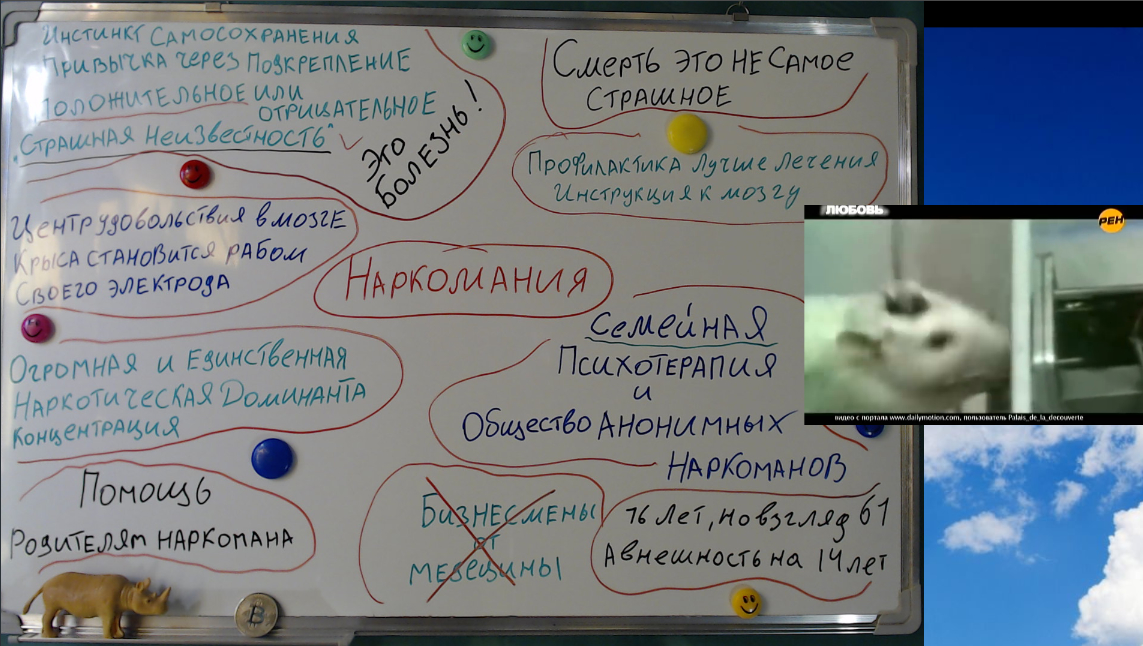 Инстинкт Самосохранения
Привычка через Подкрепление
Положительное или
отрицательное
"Страшная Неизвестность"
Это
Болезнь!
Смерть это не самое
страшное
Профилактика лучше лечения
Инструкция к мозгу
Центр удовольствия в мозге
Крыса становится рабом
Своего электрода
Наркомания
Огромная и Единственная
Наркотическая Доминанта
Концентрация
Семейная
Психотерапия
и
Общество Анонимных
Наркоманов
Помощь
Родителям наркомана
Бизнесмены
от
медецины
76 лет, но взгляд
А внешность на 14 лет
ЛЮБОВЬ
РЕН
видео с портала www.dailymotion.com, пользователь Palais_de_la_decouverte
B